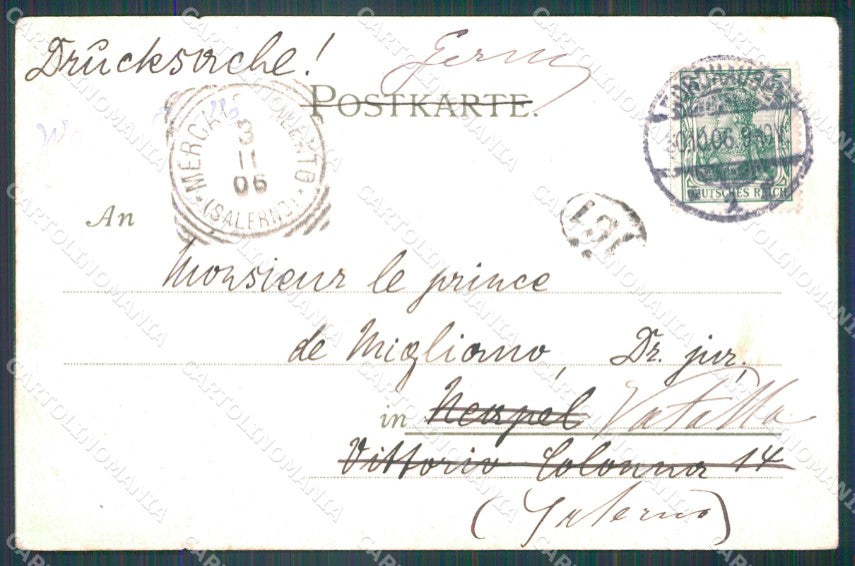 Drucksache!
POSTKARTE.
NORDHAUSEN
30.10.06. 9-10V.
DEUTSCHES REICH
MERCATO
3
11
06
(SALERNO)
An
Monsieur le prince
de Migliano, Dr. jur,
in Neapel Vatolla
Vittorio Colonna 14
(Salerno)
CARTOLINOMANIA